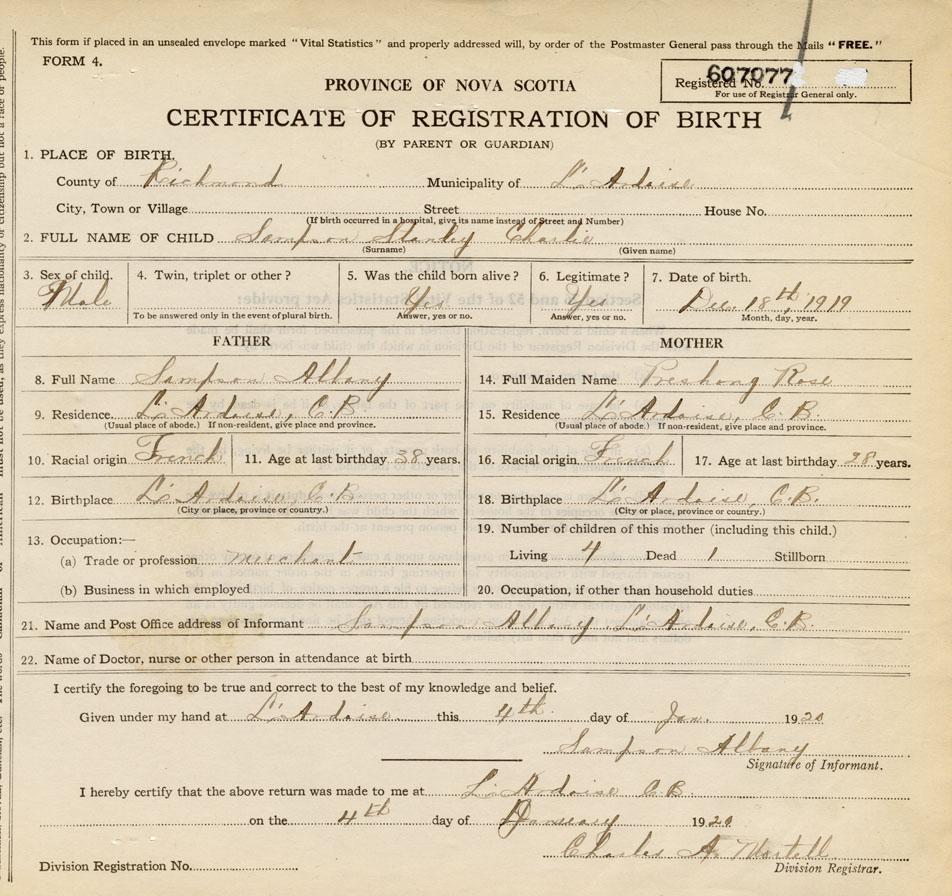 This form if placed in an unsealed envelope marked "Vital Statistics" and properly addressed will, by order of the Postmaster General pass through the Mails "FREE."
FORM 4.
607077
Registered No.
For use of Registrar General only.
PROVINCE OF NOVA SCOTIA
CERTIFICATE OF REGISTRATION OF BIRTH
(BY PARENT OR GUARDIAN)
1. PLACE OF BIRTH.
County of Richmond Municipality of L'Ardoise
City, Town or Village Street House No.
(If birth occurred in a hospital, give its name instead of Street and Number)
2. FULL NAME OF CHILD Sampson Stanley Charlie
(Surname) (Given name)
3. Sex of child. 4. Twin, triplet or other? 5. Was the child born alive? 6. Legitimate? 7. Date of birth.
Male Yes Yes Dec. 18th, 1919
To be answered only in the event of plural birth. Answer, yes or no. Answer, yes or no. Month, day, year.
FATHER MOTHER
8. Full Name Sampson Albany 14. Full Maiden Name Preshong Rose
9. Residence L'Ardoise, C.B. 15. Residence L'Ardoise, C.B.
(Usual place of abode.) If non-resident, give place and province. (Usual place of abode.) If non-resident, give place and province.
10. Racial origin French 11. Age at last birthday 38 years. 16. Racial origin French 17. Age at last birthday 28 years.
12. Birthplace L'Ardoise, C.B. 18. Birthplace L'Ardoise, C.B.
(City or place, province or country.) (City or place, province or country.)
13. Occupation:— 19. Number of children of this mother (including this child.)
(a) Trade or profession merchant Living 4 Dead 1 Stillborn
(b) Business in which employed 20. Occupation, if other than household duties
21. Name and Post Office address of Informant Sampson Albany L'Ardoise, C.B.
22. Name of Doctor, nurse or other person in attendance at birth
I certify the foregoing to be true and correct to the best of my knowledge and belief.
Given under my hand at L'Ardoise. this 4th day of Jan. 1920
Sampson Albany
Signature of Informant.
I hereby certify that the above return was made to me at L'Ardoise C.B.
on the 4th day of January 1920
Charles A. Mortell.
Division Registration No. Division Registrar.